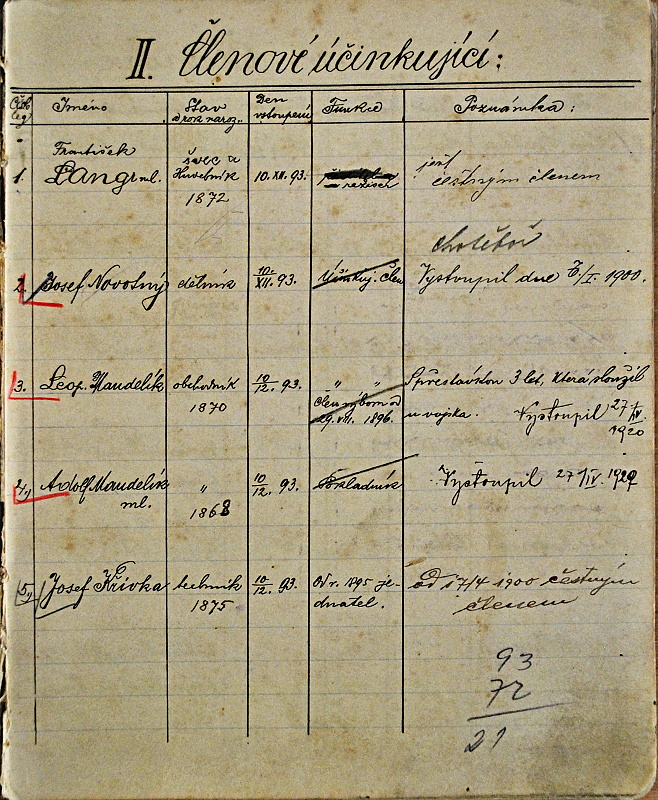 II. Členové účinkující:
Čís. leg. Jméno Stav a rok naroz. Den vstoupení Funkce Poznámka:
František
1. Langr ml. švec a Hudebník 1872 10. XII. 93. režisér jest čestným členem
Chotěboř
2. Josef Novotný dělník 10./XII. 93. Účinkuj. člen Vystoupil dne 6/I. 1900.
3. Leop. Mandelík obchodník 10/12. 93. " " S přestávkou 3 let, která sloužil
1870 Člen výboru od u vojska. Vystoupil 27/IV.
29. VII. 1896. 1920
4., Adolf Mandelík " 10/12. 93. Pokladník Vystoupil 27/IV. 1920
ml. 1868
5., Josef Křivka technik 10/12. 93. Od r. 1895 je- od 17/4 1900 čestným
1875 dnatel. členem
93
72
21